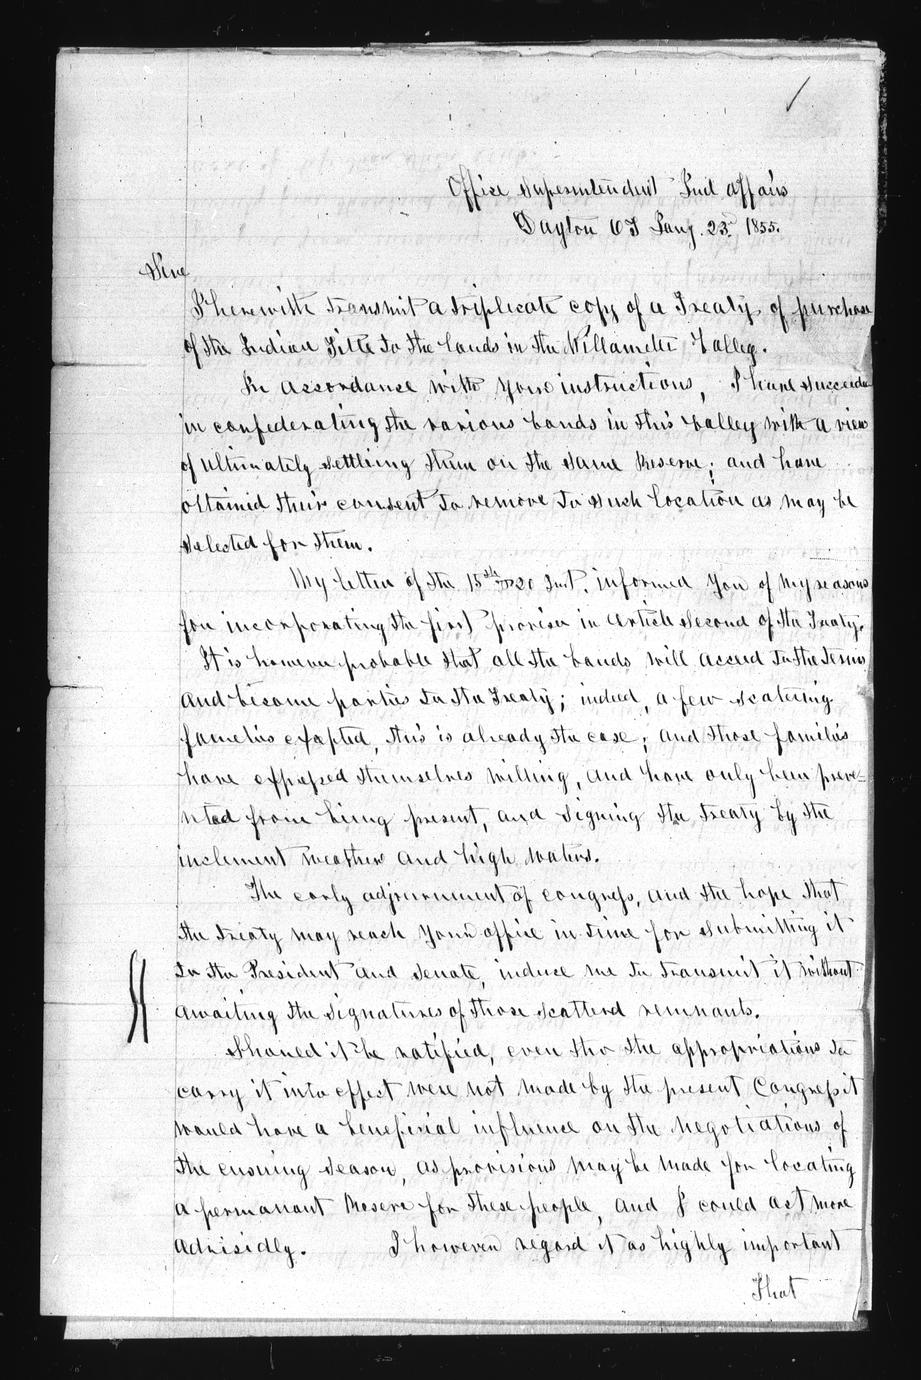 Office Superintendent Ind affairs
Dayton OT Jany. 23d 1855.
Sir
I herewith transmit a triplicate copy of a Treaty of purchase
of the Indian Title to the lands in the Willamette Valley.
In accordance with your instructions, I have succeeded
in confederating the various bands in this valley with a view
of ultimately settling them on the same Reserve; and have
obtained their consent to remove to such location as may be
selected for them.
My letter of the 15th to 20 Inst. informed you of my reasons
for incorporating the first proviso in article second of the Treaty.
It is however probable that all the bands will acceed to the terms
and become parties to the Treaty; indeed, a few scatering
famelies excepted, this is already the case; and those families
have expressed themselves willing, and have only been preve-
nted from being present, and signing the treaty by the
inclement weather and high waters.
The early adjournment of congress, and the hope that
the treaty may reach your office in time for submitting it
to the President and Senate, induce me to transmit it without
awaiting the signatures of those scatterd remnants.
Should it be ratified, even tho the appropriations to
carry it into effect were not made by the present Congress it
would have a beneficial influence on the negotiations of
the ensuing season, as provisions may be made for locating
a permanant Reserve for these people, and I could act more
advisidly. I however regard it as highly important
That